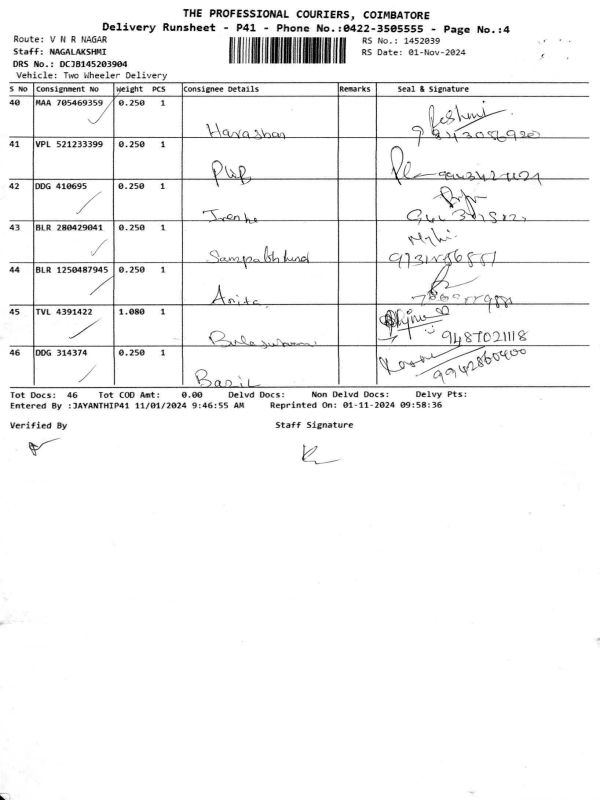 THE PROFESSIONAL COURIERS, COIMBATORE
Delivery Runsheet - P41 - Phone No.:0422-3505555 - Page No.:4
Route: V N R NAGAR
RS No.: 1452039
Staff: NAGALAKSHMI
RS Date: 01-Nov-2024
DRS No.: DCJB145203904
Vehicle: Two Wheeler Delivery
S No Consignment No Weight PCS Consignee Details Remarks Seal & Signature
40 MAA 705469359 0.250 1
41 VPL 521233399 0.250 1
PWB
42 DDG 410695 0.250 1
43 BLR 280429041 0.250 1
44 BLR 1250487945 0.250 1
Anita
45 TVL 4391422 1.080 1
9487021118
46 DDG 314374 0.250 1
9942860400
Bazil
Tot Docs: 46 Tot COD Amt: 0.00 Delvd Docs: Non Delvd Docs: Delvy Pts:
Entered By :JAYANTHIP41 11/01/2024 9:46:55 AM Reprinted On: 01-11-2024 09:58:36
Verified By Staff Signature